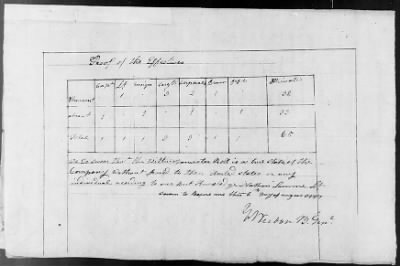 Proof of the Effectives
Capt Lt Ensign Sergts Corporals Drum fife Privates
Present 1 1 3 2 1 1 32
absent 1 1 33
Total 1 1 1 3 3 1 1 65
Sworn that the within muster Roll is a true state of the
Company without fraud to these United states or any
individual according to our best Knowledge Nathan Lt
sworn to before me this 6th Day of august
G Weedon B. Genl.